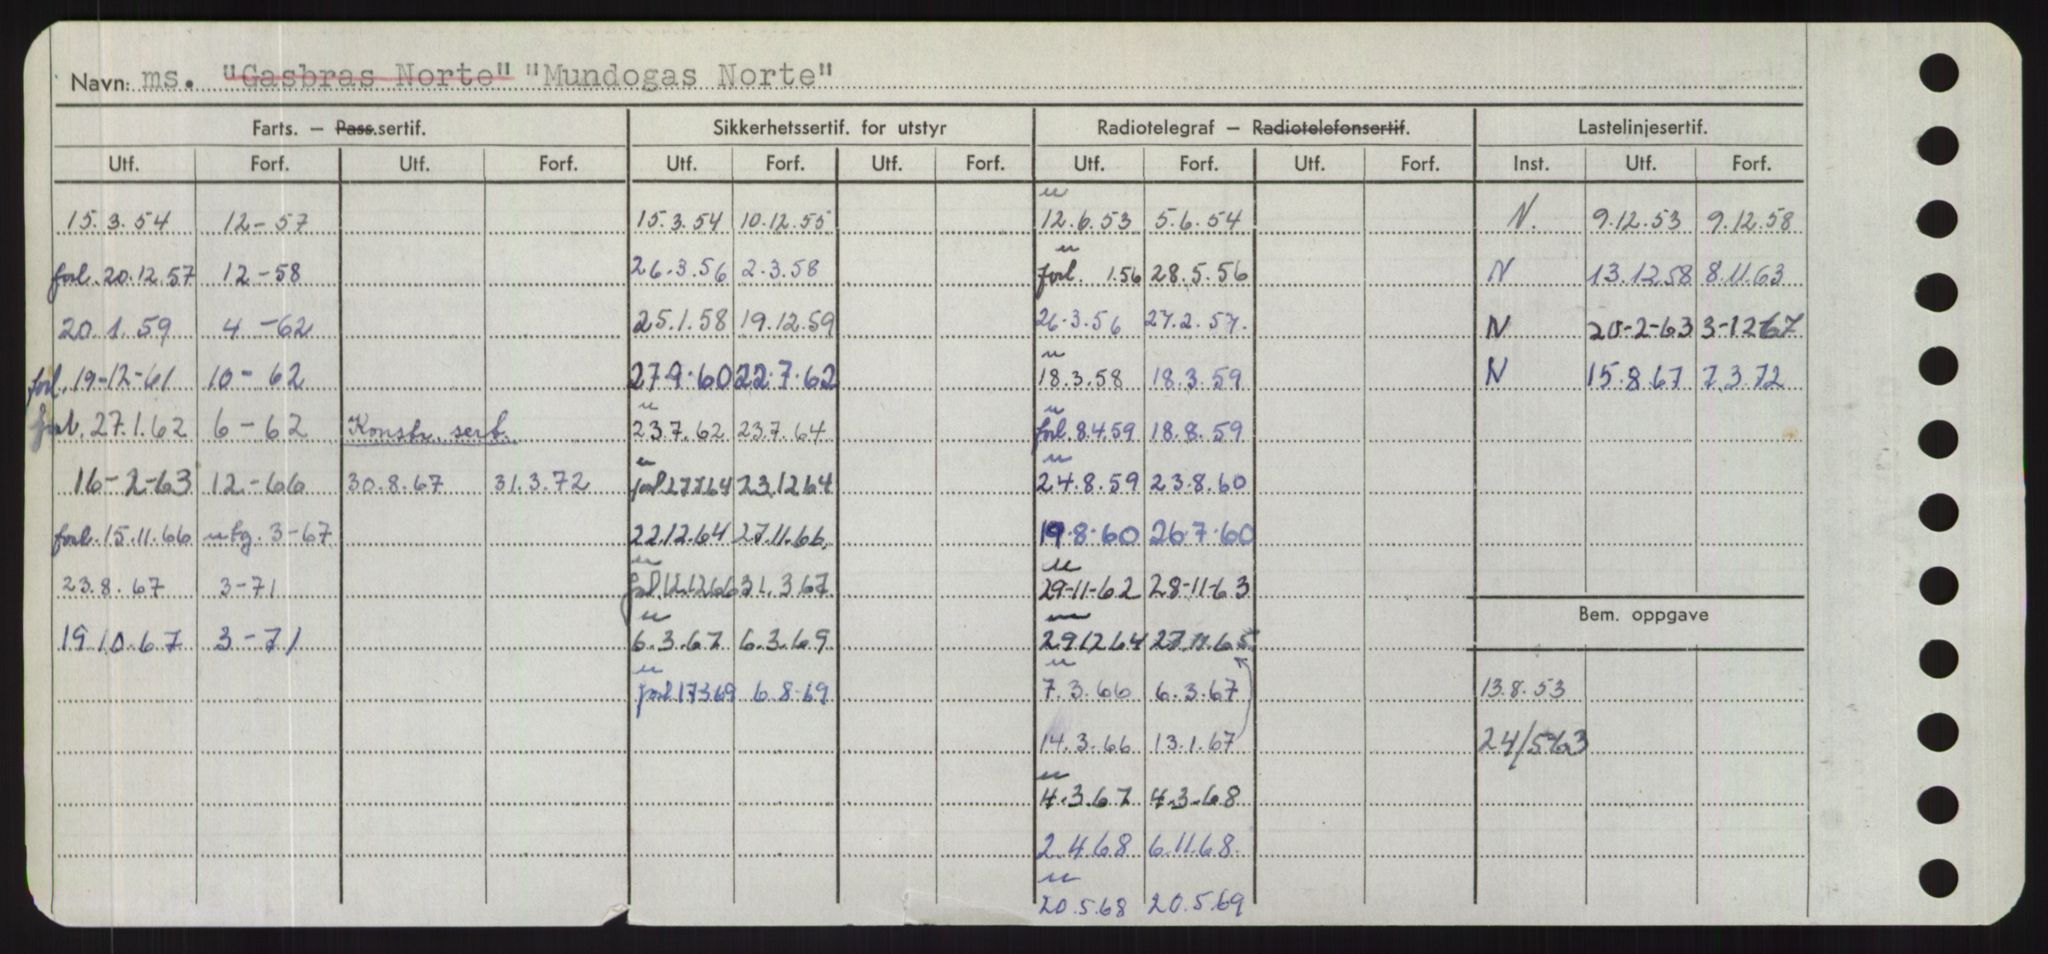 Navn: ms. "Gasbras Norte" "Mundogas Norte"
Farts. — Pass.sertif. Sikkerhetssertif. for utstyr Radiotelegraf — Radiotelefonsertif. Lastelinjesertif.
Utf. Forf. Utf. Forf. Utf. Forf. Utf. Forf. Utf. Forf. Utf. Forf. Inst. Utf. Forf.
15.3.54 12-57 15.3.54 10.12.55 12.6.53 5.6.54 N. 9.12.53 9.12.58
forl. 20.12.57 12-58 26.3.56 2.3.58 forl. 1.56 28.5.56 N 13.12.58 8.11.63
20.1.59 4-62 25.1.58 19.12.59 26.3.56 27.2.57. N 20-2-63 3-12-67
forl. 19-12-61 10-62 27.9.60 22.7.62 18.3.58 18.3.59 N 15.8.67 7.3.72
forl. 27.1.62 6-62 Konstr. sert. 23.7.62 23.7.64 forl. 8.4.59 18.8.59
16-2-63 12-66 30.8.67 31.3.72 forl. 27.7.64 23.12.64 24.8.59 23.8.60
forl. 15.11.66 utg. 3-67 22.12.64 27.11.66. 19.8.60 26.7.60
23.8.67 3-71 forl. 12.12.66 31.3.67 29-11-62 28-11-63
Bem. oppgave
19.10.67 3-71 6.3.67 6.3.69 29.12.64 27.11.65
forl. 17.3.69 6.8.69 7.3.66 6.3.67 13.8.53
14.3.66 13.1.67 24/5-63
4.3.67 4.3.68
2.4.68 6.11.68.
20.5.68 20.5.69